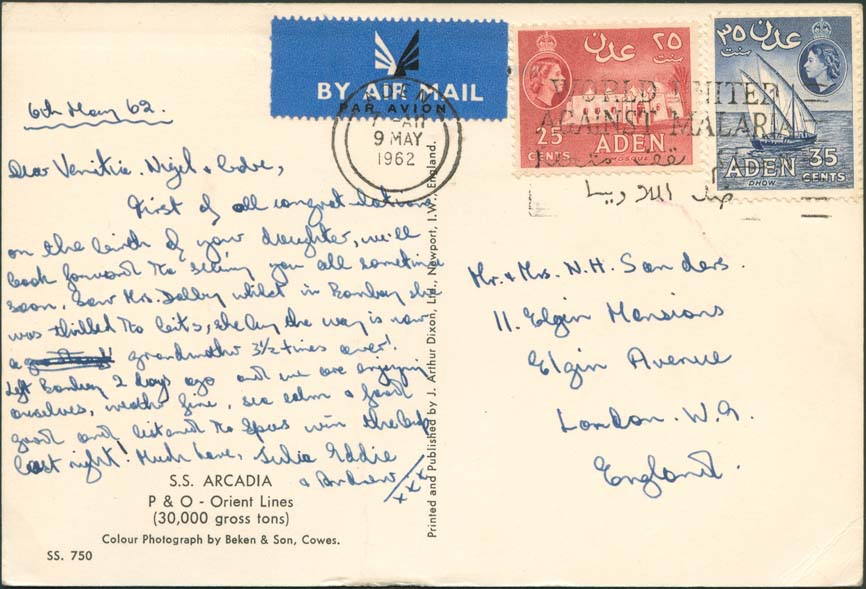 6th May 62.
BY AIR MAIL
PAR AVION
9 MAY
1962
عدن
٢٥
سنت
25
CENTS
ADEN
MOSQUE
٣٥
سنت
عدن
ADEN
DHOW
35
CENTS
WORLD UNITED
AGAINST MALARIA
ضد الملاريا
Dear Venitia, Nigel & babe,
First of all congratulations
on the birth of your daughter, we'll
look forward to seeing you all sometime
soon. Saw Mrs. Dalby whilst in Bombay she
was thrilled to bits, she by the way is now
a grandmother 3½ times over!
Left Bombay 2 days ago and we are enjoying
ourselves, weather fine, sea calm & food
good and listened to Spurs win the cup
last night! Much love, Julia Eddie
& Andrew xxx
S.S. ARCADIA
P & O - Orient Lines
(30,000 gross tons)
Colour Photograph by Beken & Son, Cowes.
SS. 750
Printed and Published by J. Arthur Dixon, Ltd., Newport, I.W., England.
Mr. & Mrs. N. H. Sanders.
11. Elgin Mansions
Elgin Avenue
London. W.9.
England.